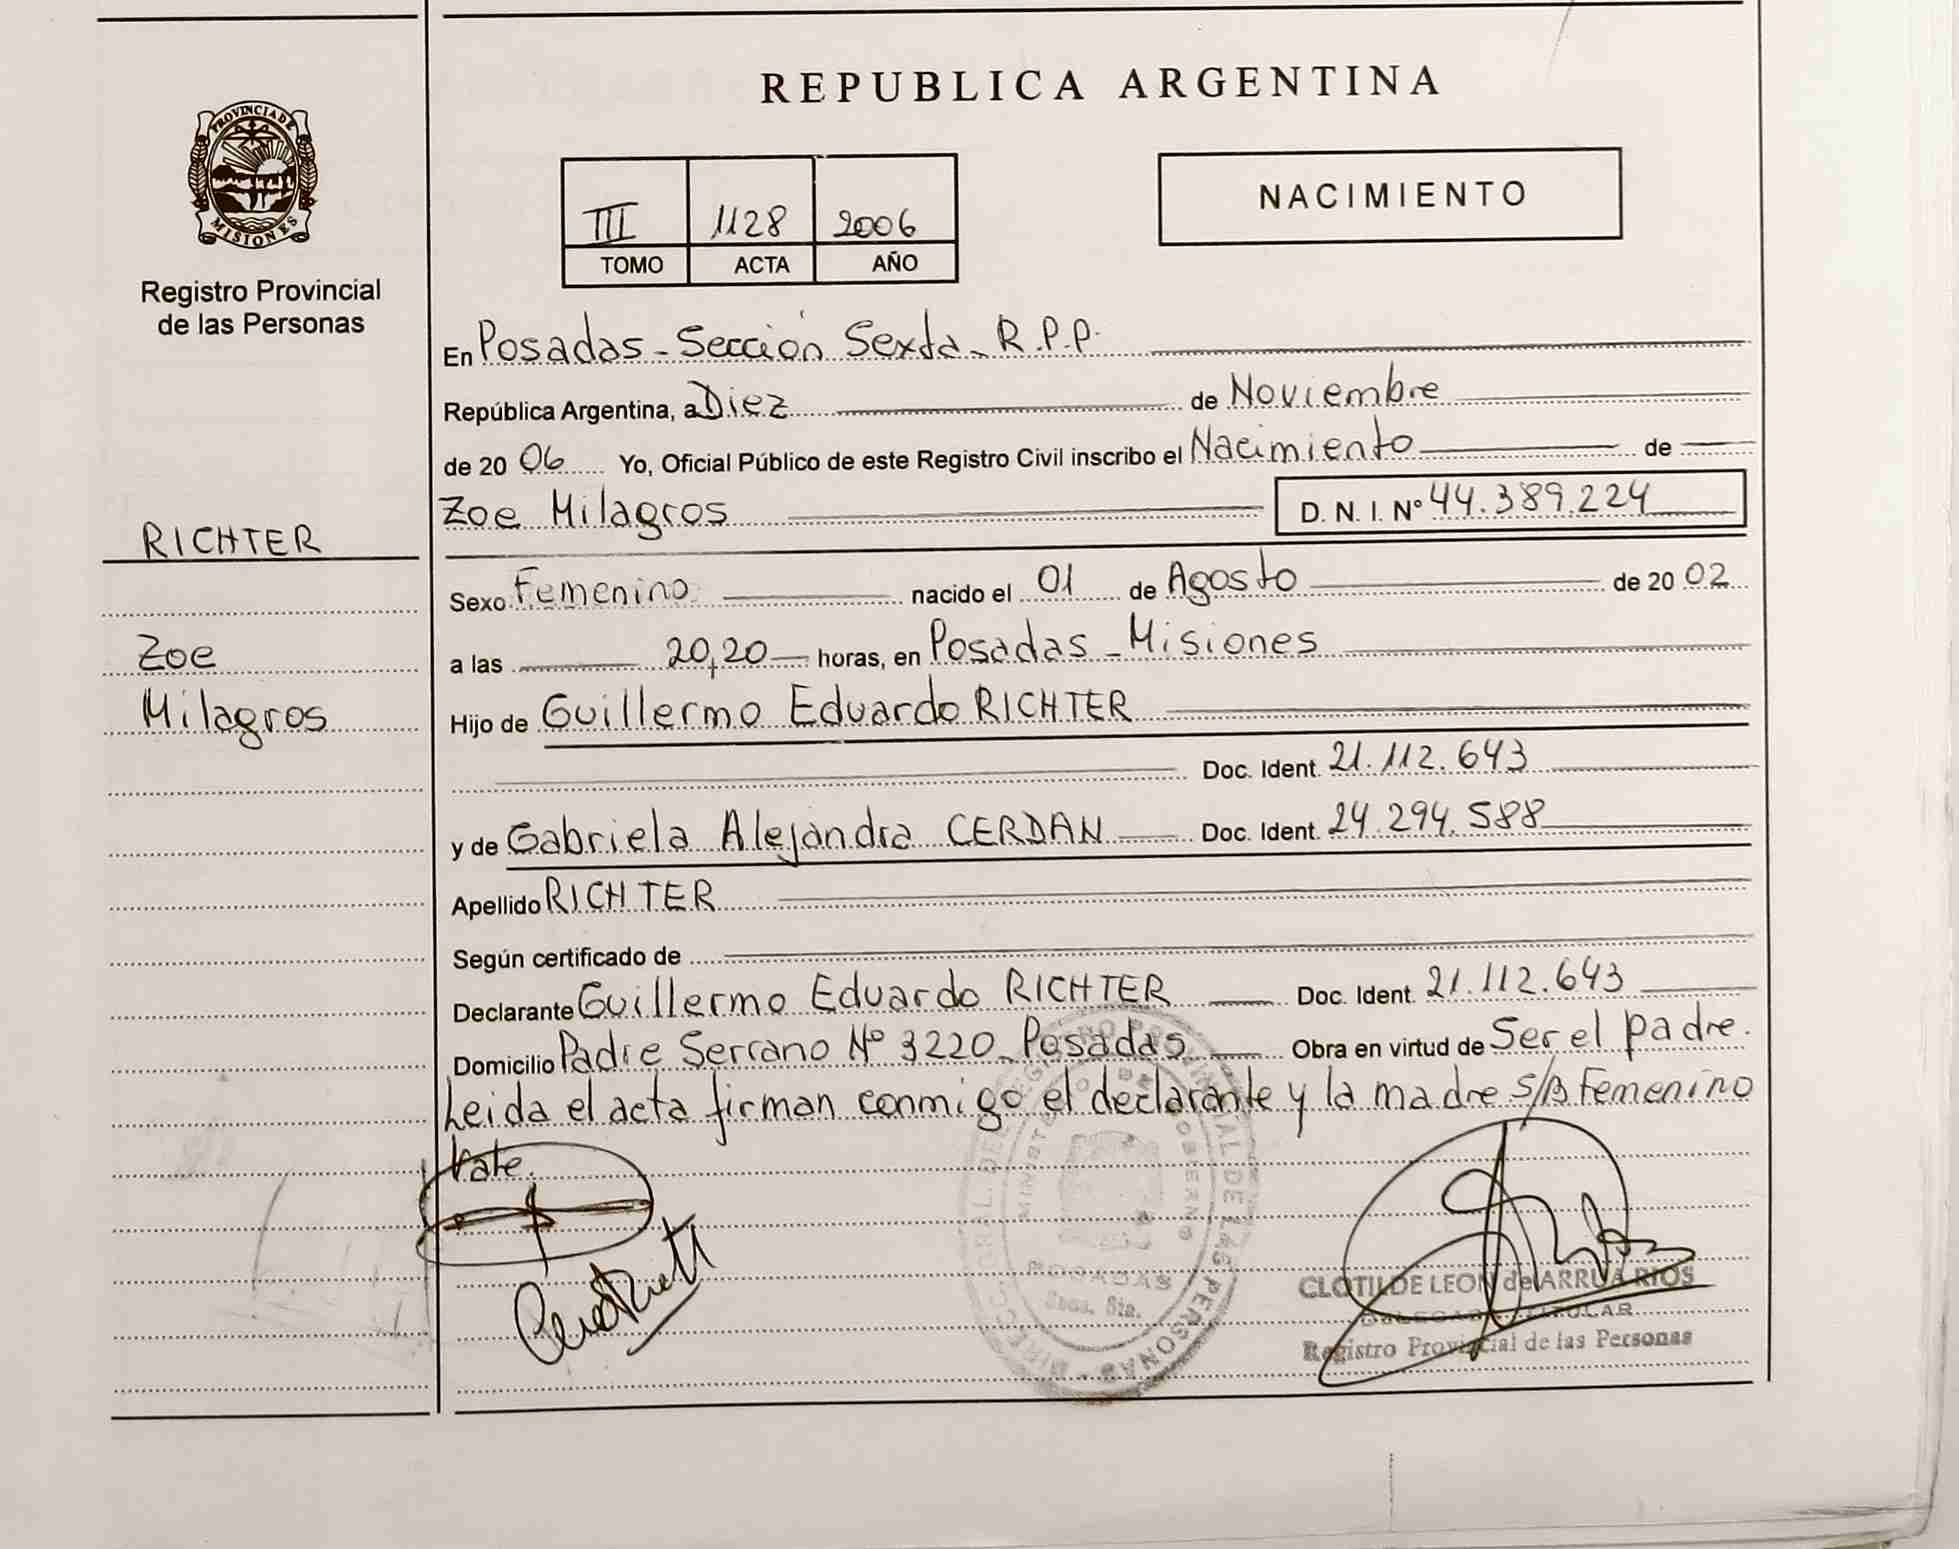 REPUBLICA ARGENTINA
PROVINCIA DE
MISIONES
Registro Provincial
de las Personas
III 1128 2006
TOMO ACTA AÑO
NACIMIENTO
En Posadas - Sección Sexta - R.P.P.
República Argentina, a Diez de Noviembre
de 20 06 Yo, Oficial Público de este Registro Civil inscribo el Nacimiento de
Zoe Milagros D. N. I. Nº 44.389.224
RICHTER
Sexo Femenino nacido el 01 de Agosto de 20 02
Zoe
a las 20,20 horas, en Posadas - Misiones
Milagros
Hijo de Guillermo Eduardo RICHTER
Doc. Ident. 21.112.643
y de Gabriela Alejandra CERDAN Doc. Ident. 24.294.588
Apellido RICHTER
Según certificado de
Declarante Guillermo Eduardo RICHTER Doc. Ident. 21.112.643
Domicilio Padre Serrano Nº 3220 Posadas Obra en virtud de Ser el padre.
Leida el acta firman conmigo el declarante y la madre S/B Femenino
Vale.
POSADAS
CLOTILDE LEON de ARRUA RIOS
Registro Provincial de las Personas